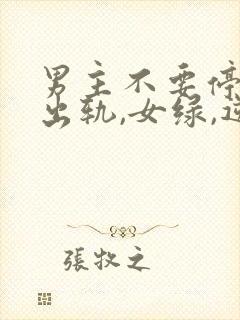 男主不要停
出轨,女绿,逆
張牧之